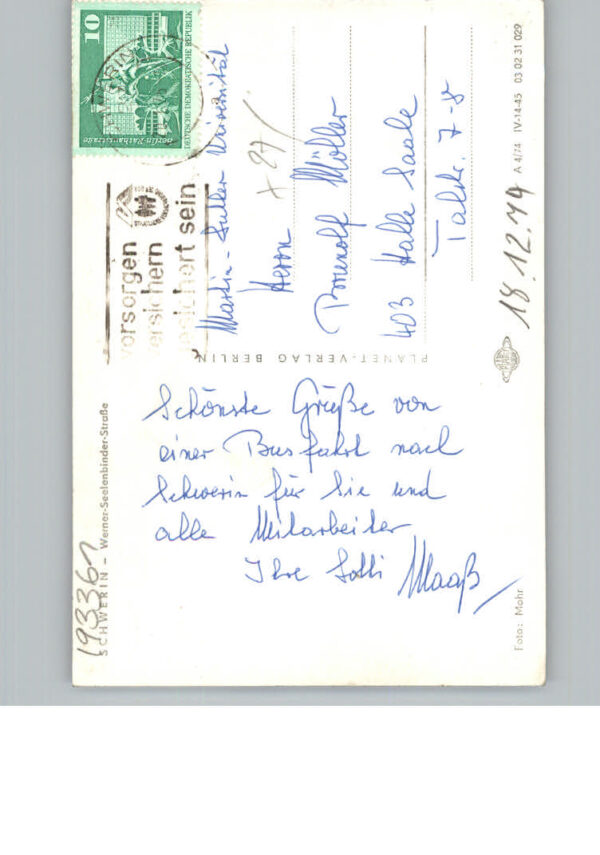 SCHWERIN – Werner-Seelenbinder-Straße
193361
Schönste Grüße von
einer Busfahrt nach
Schwerin für Sie und
alle Mitarbeiter
Ihre Lotti Maaß
Foto: Mohr
PLANET-VERLAG BERLIN
10
DEUTSCHE DEMOKRATISCHE REPUBLIK
Berlin-Rathausstraße
vorsorgen
versichern
gesichert sein
Martin-Luther Universität
Herrn
Möller
403 Halle Saale
Talstr. 7-8
18.12.74
A 4/74 IV-14-45 03 02 31 029